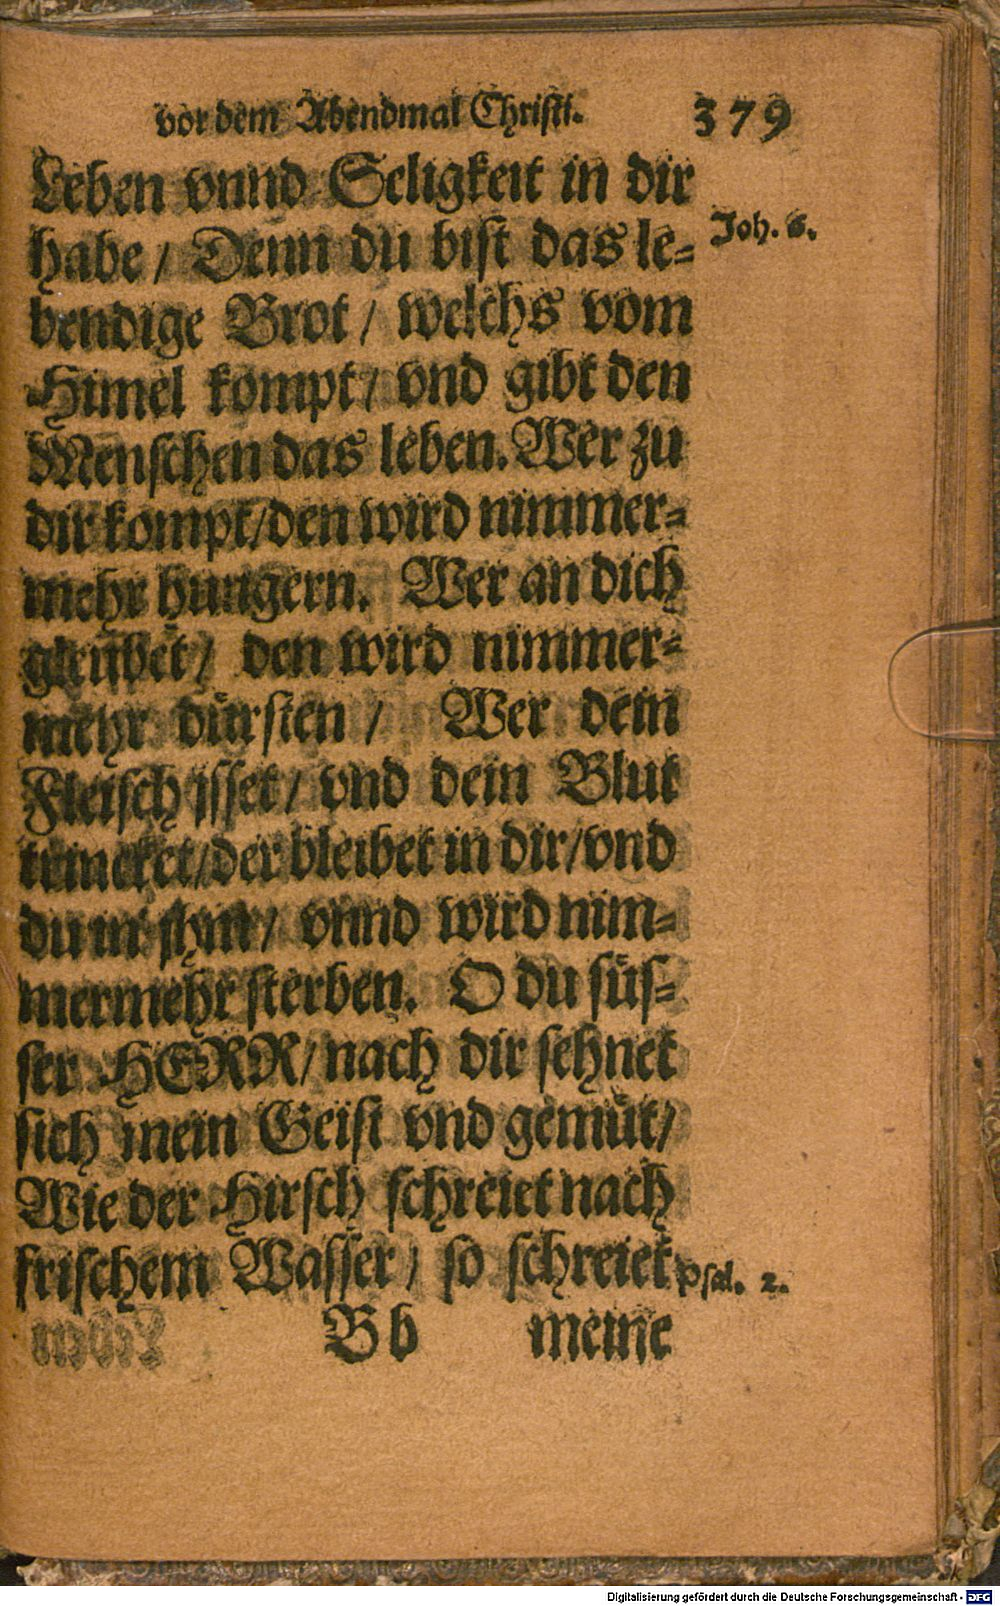 vor dem Abendmal Christi. 379
Leben vnnd Seligkeit in dir
habe / Denn du bist das le-
Joh. 6.
bendige Brot / welchs vom
Himel kompt / vnd gibt den
Menschen das leben. Wer zu
dir kompt / den wird nimmer-
mehr hungern. Wer an dich
gleubet / den wird nimmer-
mehr dürsten / Wer dein
Fleisch isset / vnd dein Blut
trincket / der bleibet in dir / vnd
du in jhm / vnnd wird nim-
mermehr sterben. O du süs-
ser HERR / nach dir sehnet
sich mein Geist vnd gemüt /
Wie der Hirsch schreiet nach
frischem Wasser / so schreiet
Psal. 2.
Bb meine
Digitalisierung gefördert durch die Deutsche Forschungsgemeinschaft - DFG